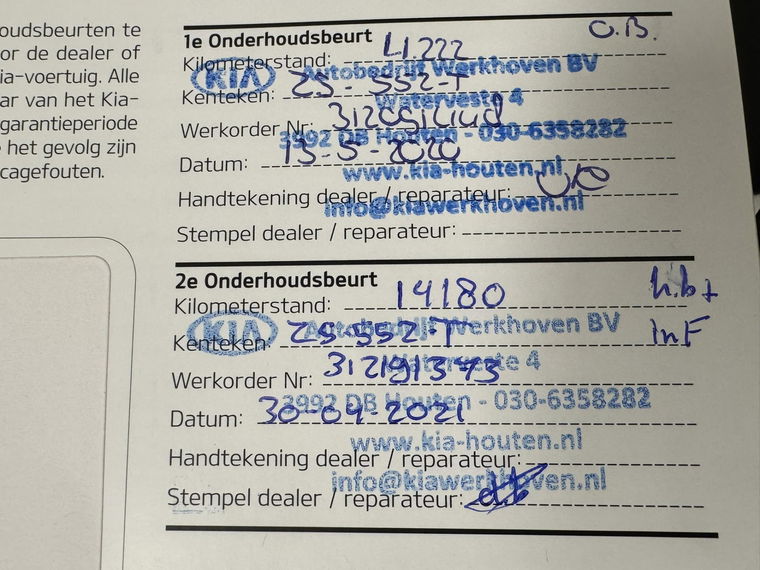 oudsbeurten te
or de dealer of
ia-voertuig. Alle
ar van het Kia-
garantieperiode
het gevolg zijn
cagefouten.
1e Onderhoudsbeurt
O.B.
Kilometerstand:
KIA
Autobedrijf Werkhoven BV
Kenteken: ZS-552-T
Waterveste 4
Werkorder Nr:
3992 DB Houten - 030-6358282
Datum: 13-5-2020
www.kia-houten.nl
Handtekening dealer / reparateur:
info@kiawerkhoven.nl
Stempel dealer / reparateur:
2e Onderhoudsbeurt
Kilometerstand: 14180
h.b +
KIA
Autobedrijf Werkhoven BV
Kenteken: ZS 552-T
InF
Waterveste 4
Werkorder Nr: 31291373
3992 DB Houten - 030-6358282
Datum: 30-04-2021
www.kia-houten.nl
Handtekening dealer / reparateur:
info@kiawerkhoven.nl
Stempel dealer / reparateur: